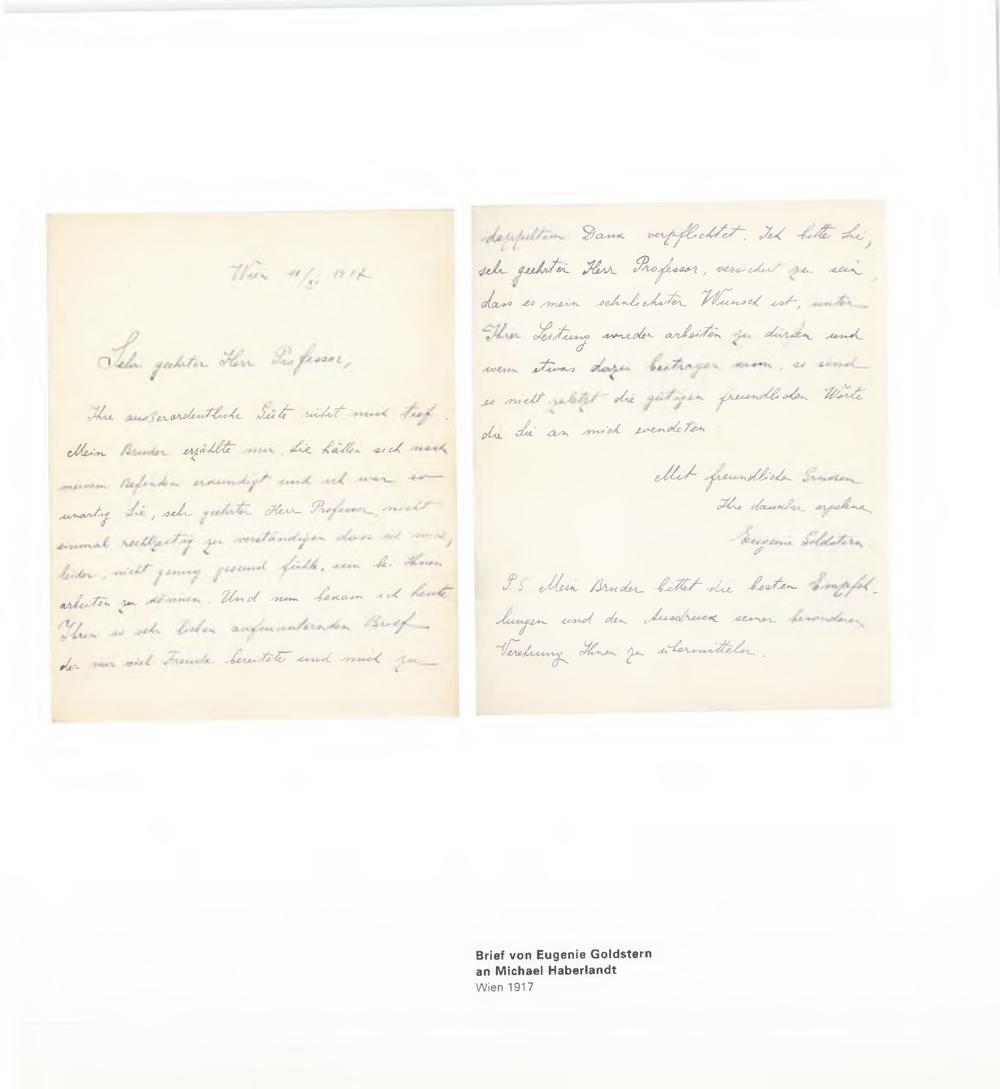 Wien 11/XI 1917
Sehr geehrter Herr Professor,
Ihre außerordentliche Güte rührt mich tief.
Mein Bruder erzählte mir, Sie hätten sich nach
meinem Befinden erkundigt und ich war so
unartig Sie, sehr geehrter Herr Professor, nicht
einmal rechtzeitig zu verständigen dass ich mich,
leider, nicht genug gesund fühle, um bei Ihnen
arbeiten zu können. Und nun bekam ich heute
Ihren so sehr lieben aufmunternden Brief
der mir viel Freude bereitete und mich zu
doppeltem Dank verpflichtet. Ich bitte Sie,
sehr geehrter Herr Professor, versichert zu sein,
dass es mein sehnlichster Wunsch ist, unter
Ihrer Leitung wieder arbeiten zu dürfen und
wenn etwas dazu beitragen kann, so sind
es nicht zuletzt die gütigen freundlichen Worte
die Sie an mich wendeten.
Mit freundlichen Grüssen
Ihre dankbar ergebene
Eugenie Goldstern.
P.S. Mein Bruder bittet die besten Empfeh-
lungen und den Ausdruck seiner besonderen
Verehrung Ihnen zu übermitteln.
Brief von Eugenie Goldstern
an Michael Haberlandt
Wien 1917